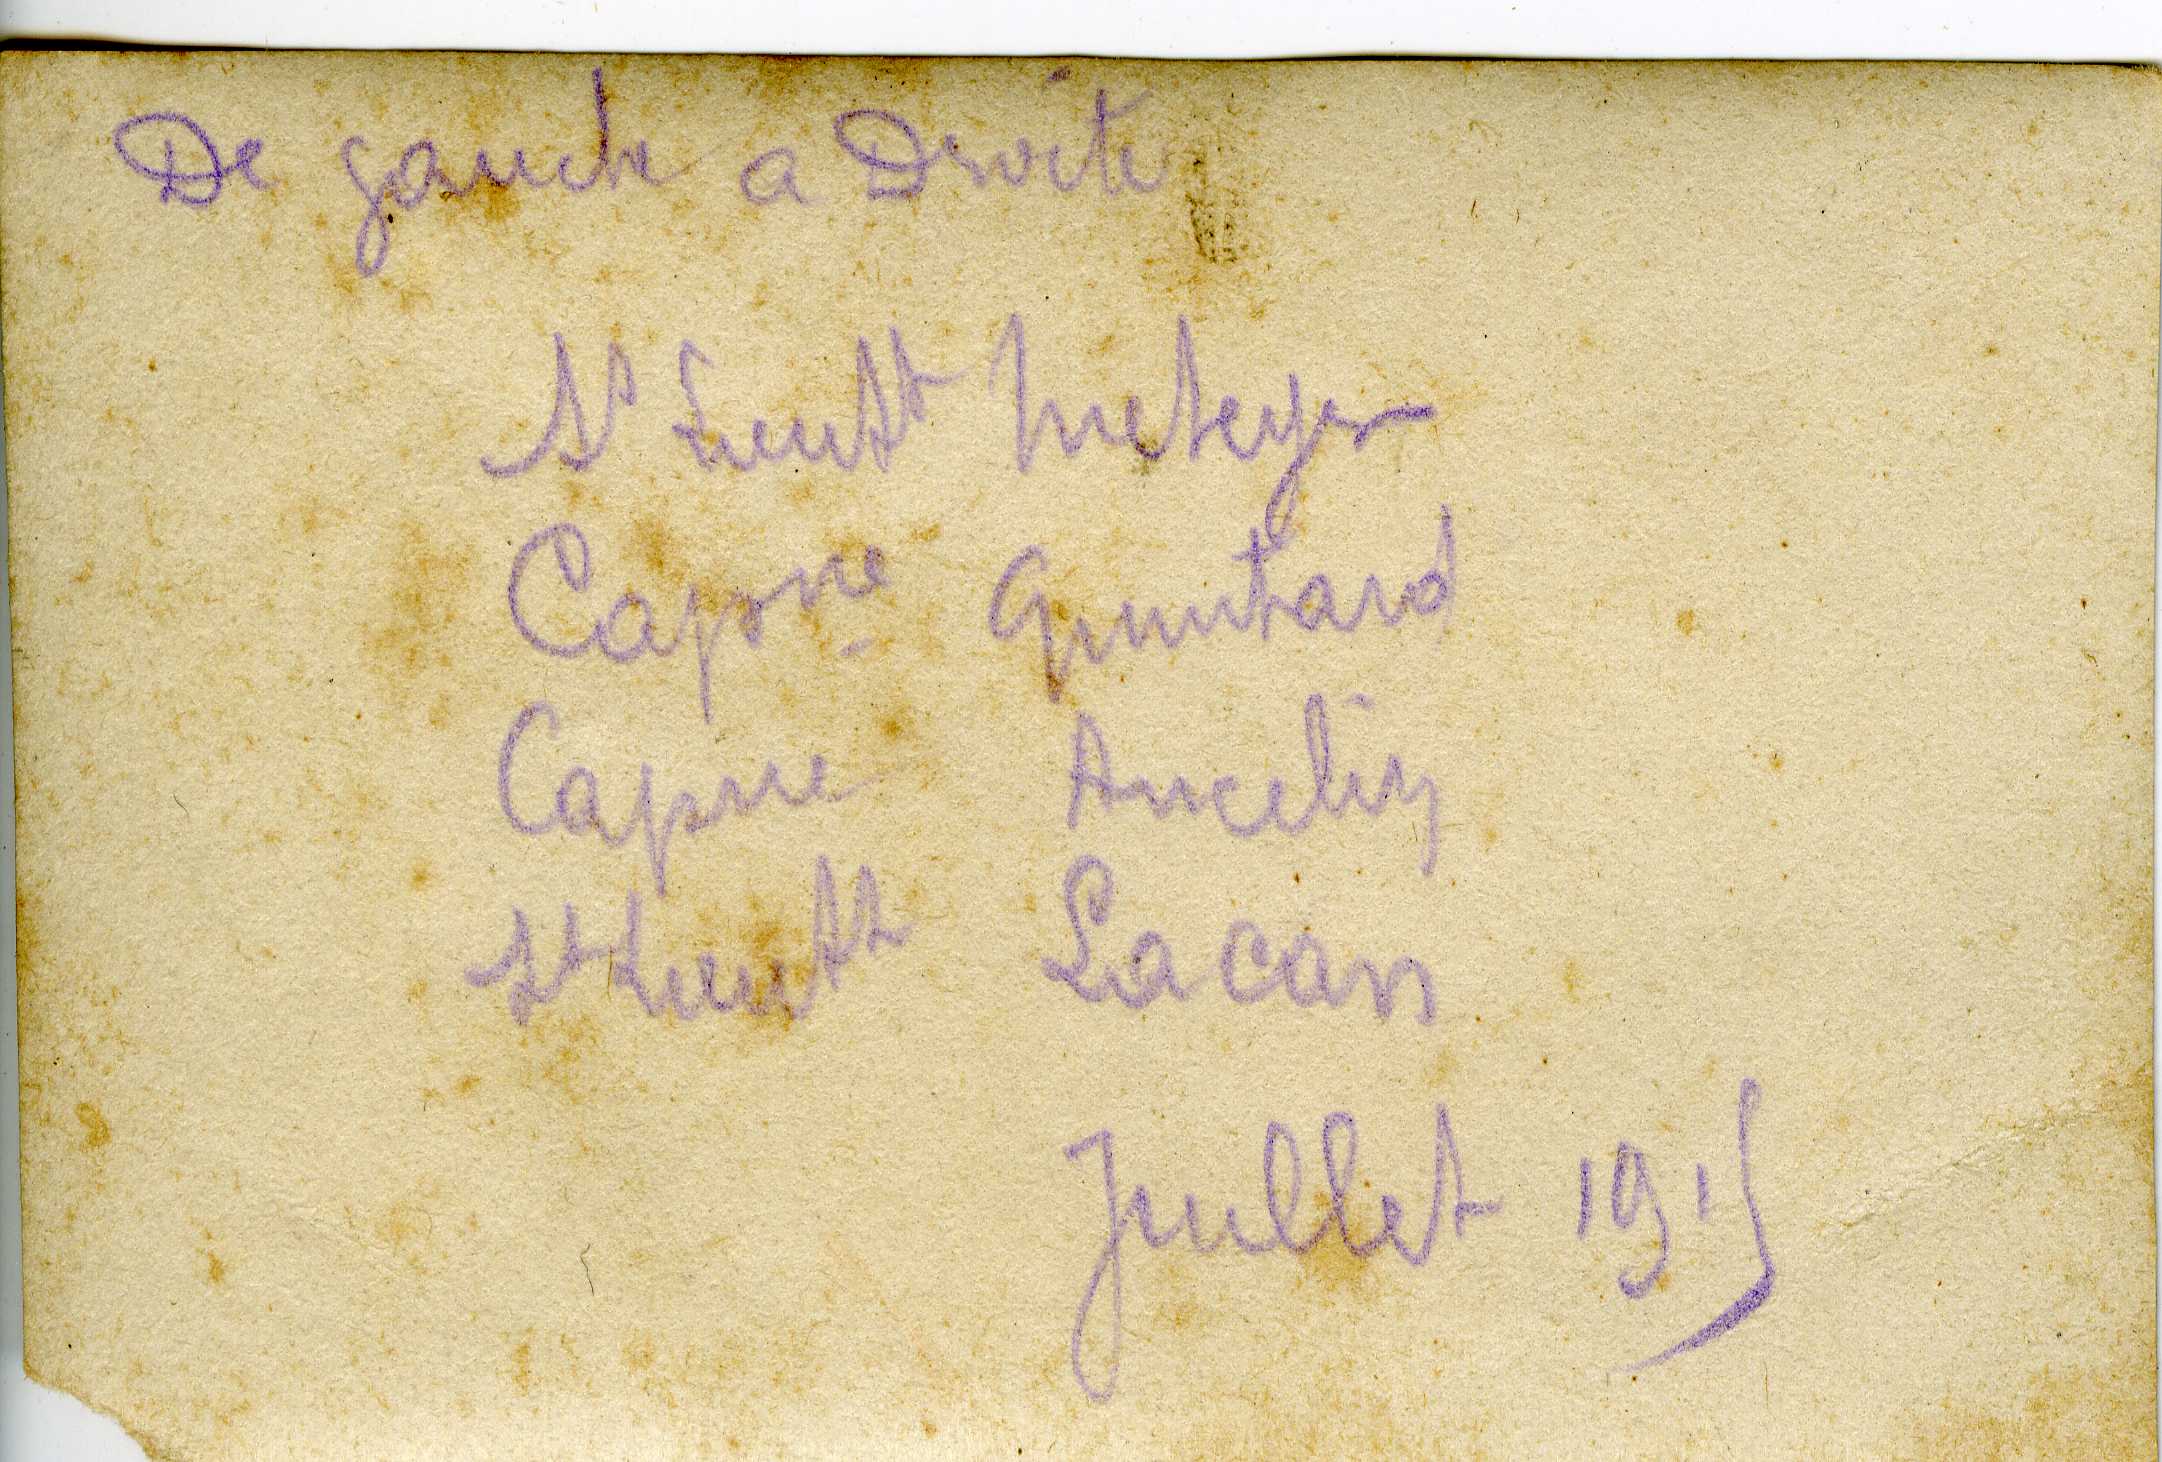 De gauche a Droite
St Lieutt Meteyer
Capne Guintard
Capne Ancelin
St Lieutt Lacan
Juillet 1915